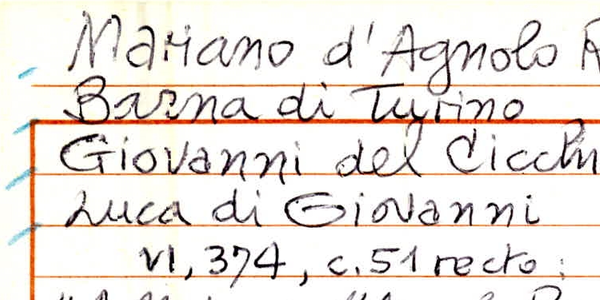 Mariano d'Agnolo
Barna di Turino
Giovanni del Cicchi
Luca di Giovanni
VI, 374, c. 51 recto;